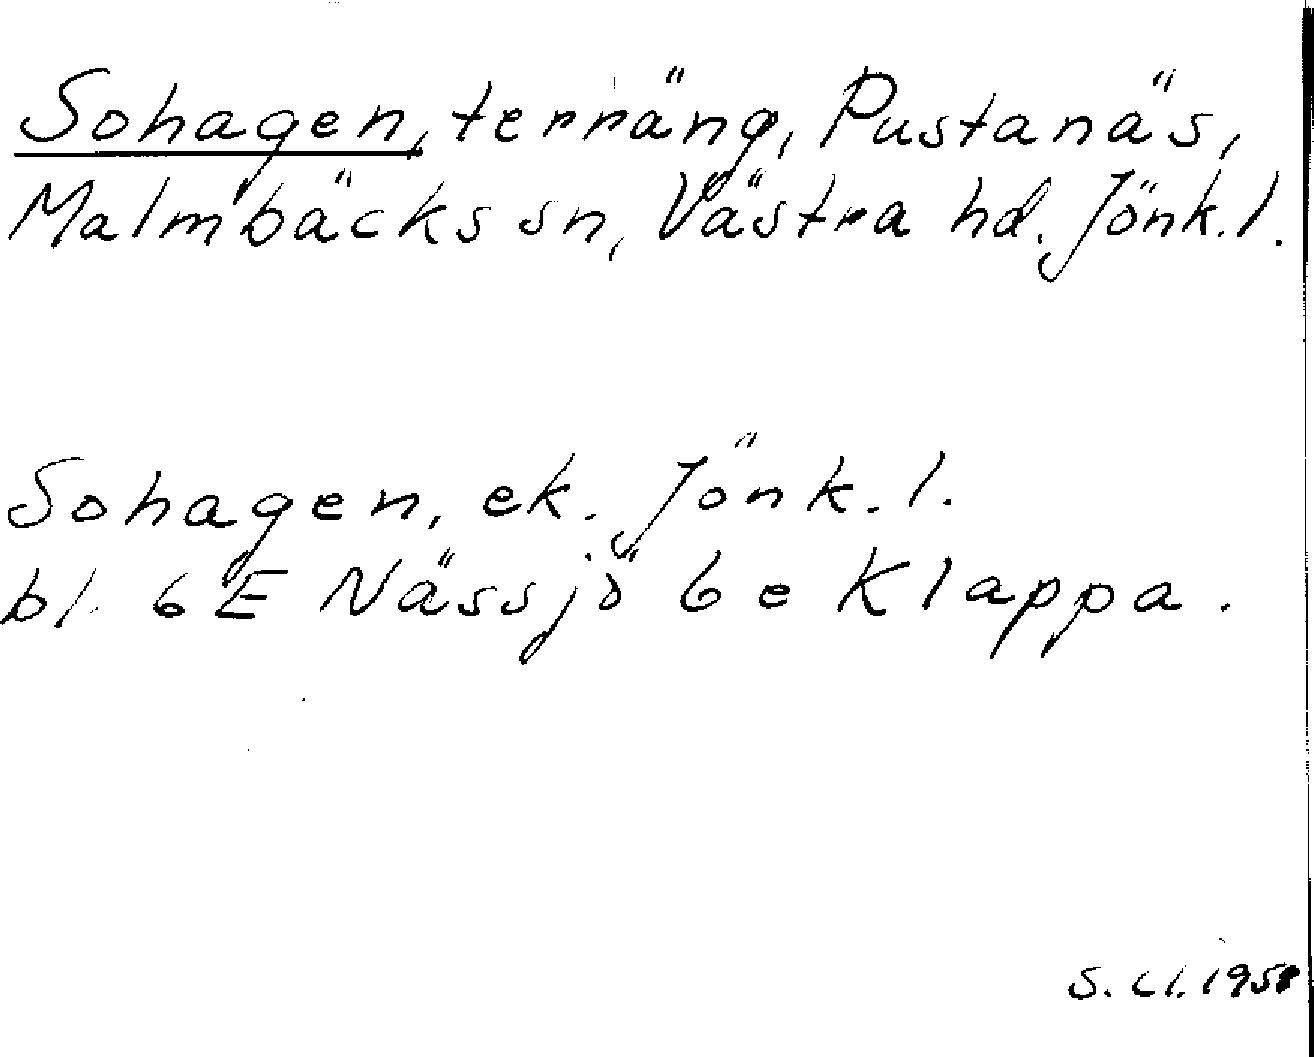 Sohagen, terräng, Pustanäs,
Malmbäcks sn, Västra hd. Jönk.l.
Sohagen, ek. Jönk.l.
bl. 6E Nässjö 6e Klappa.
S. Cl.